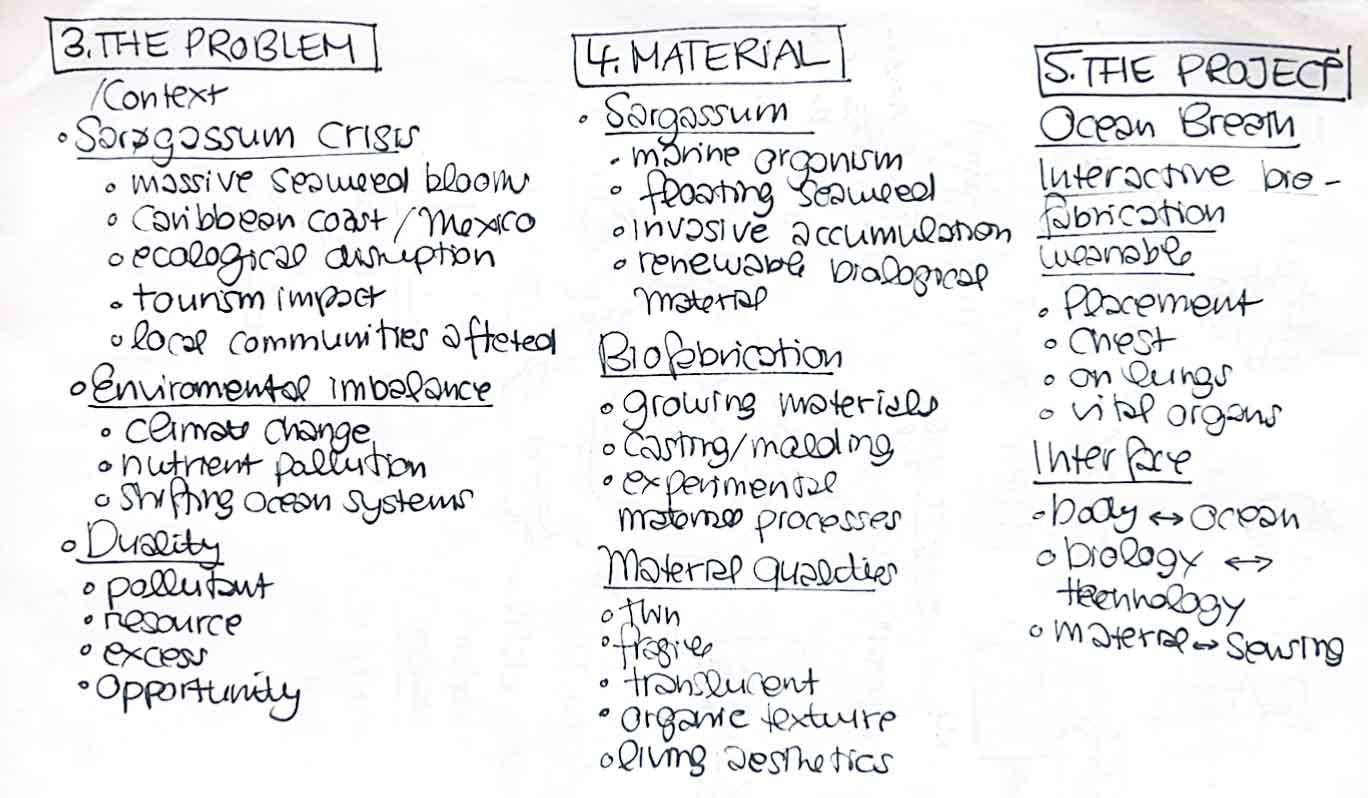 3. THE PROBLEM
/Context
• Sargassum crisis
• massive seaweed bloom
• Caribbean coast / Mexico
• ecological disruption
• tourism impact
• local communities affeted
• Enviromental imbalance
• climate change
• nutrient pollution
• shifting ocean systems
• Duality
• pollutant
• resource
• excess
• opportunity
4. MATERIAL
• Sargassum
• marine organism
• floating seaweed
• invasive accumulation
• renewable biological
material
Biofabrication
• growing materials
• casting/molding
• experimental
processes
Material qualities
• thin
• fragile
• translucent
• organic texture
• living aesthetics
5. THE PROJECT
Ocean Breath
Interactive bio-
fabrication
wearable
• Placement
• chest
• on lungs
• vital organs
Interface
• body ↔ ocean
• biology ↔
technology
• material ↔ sensing